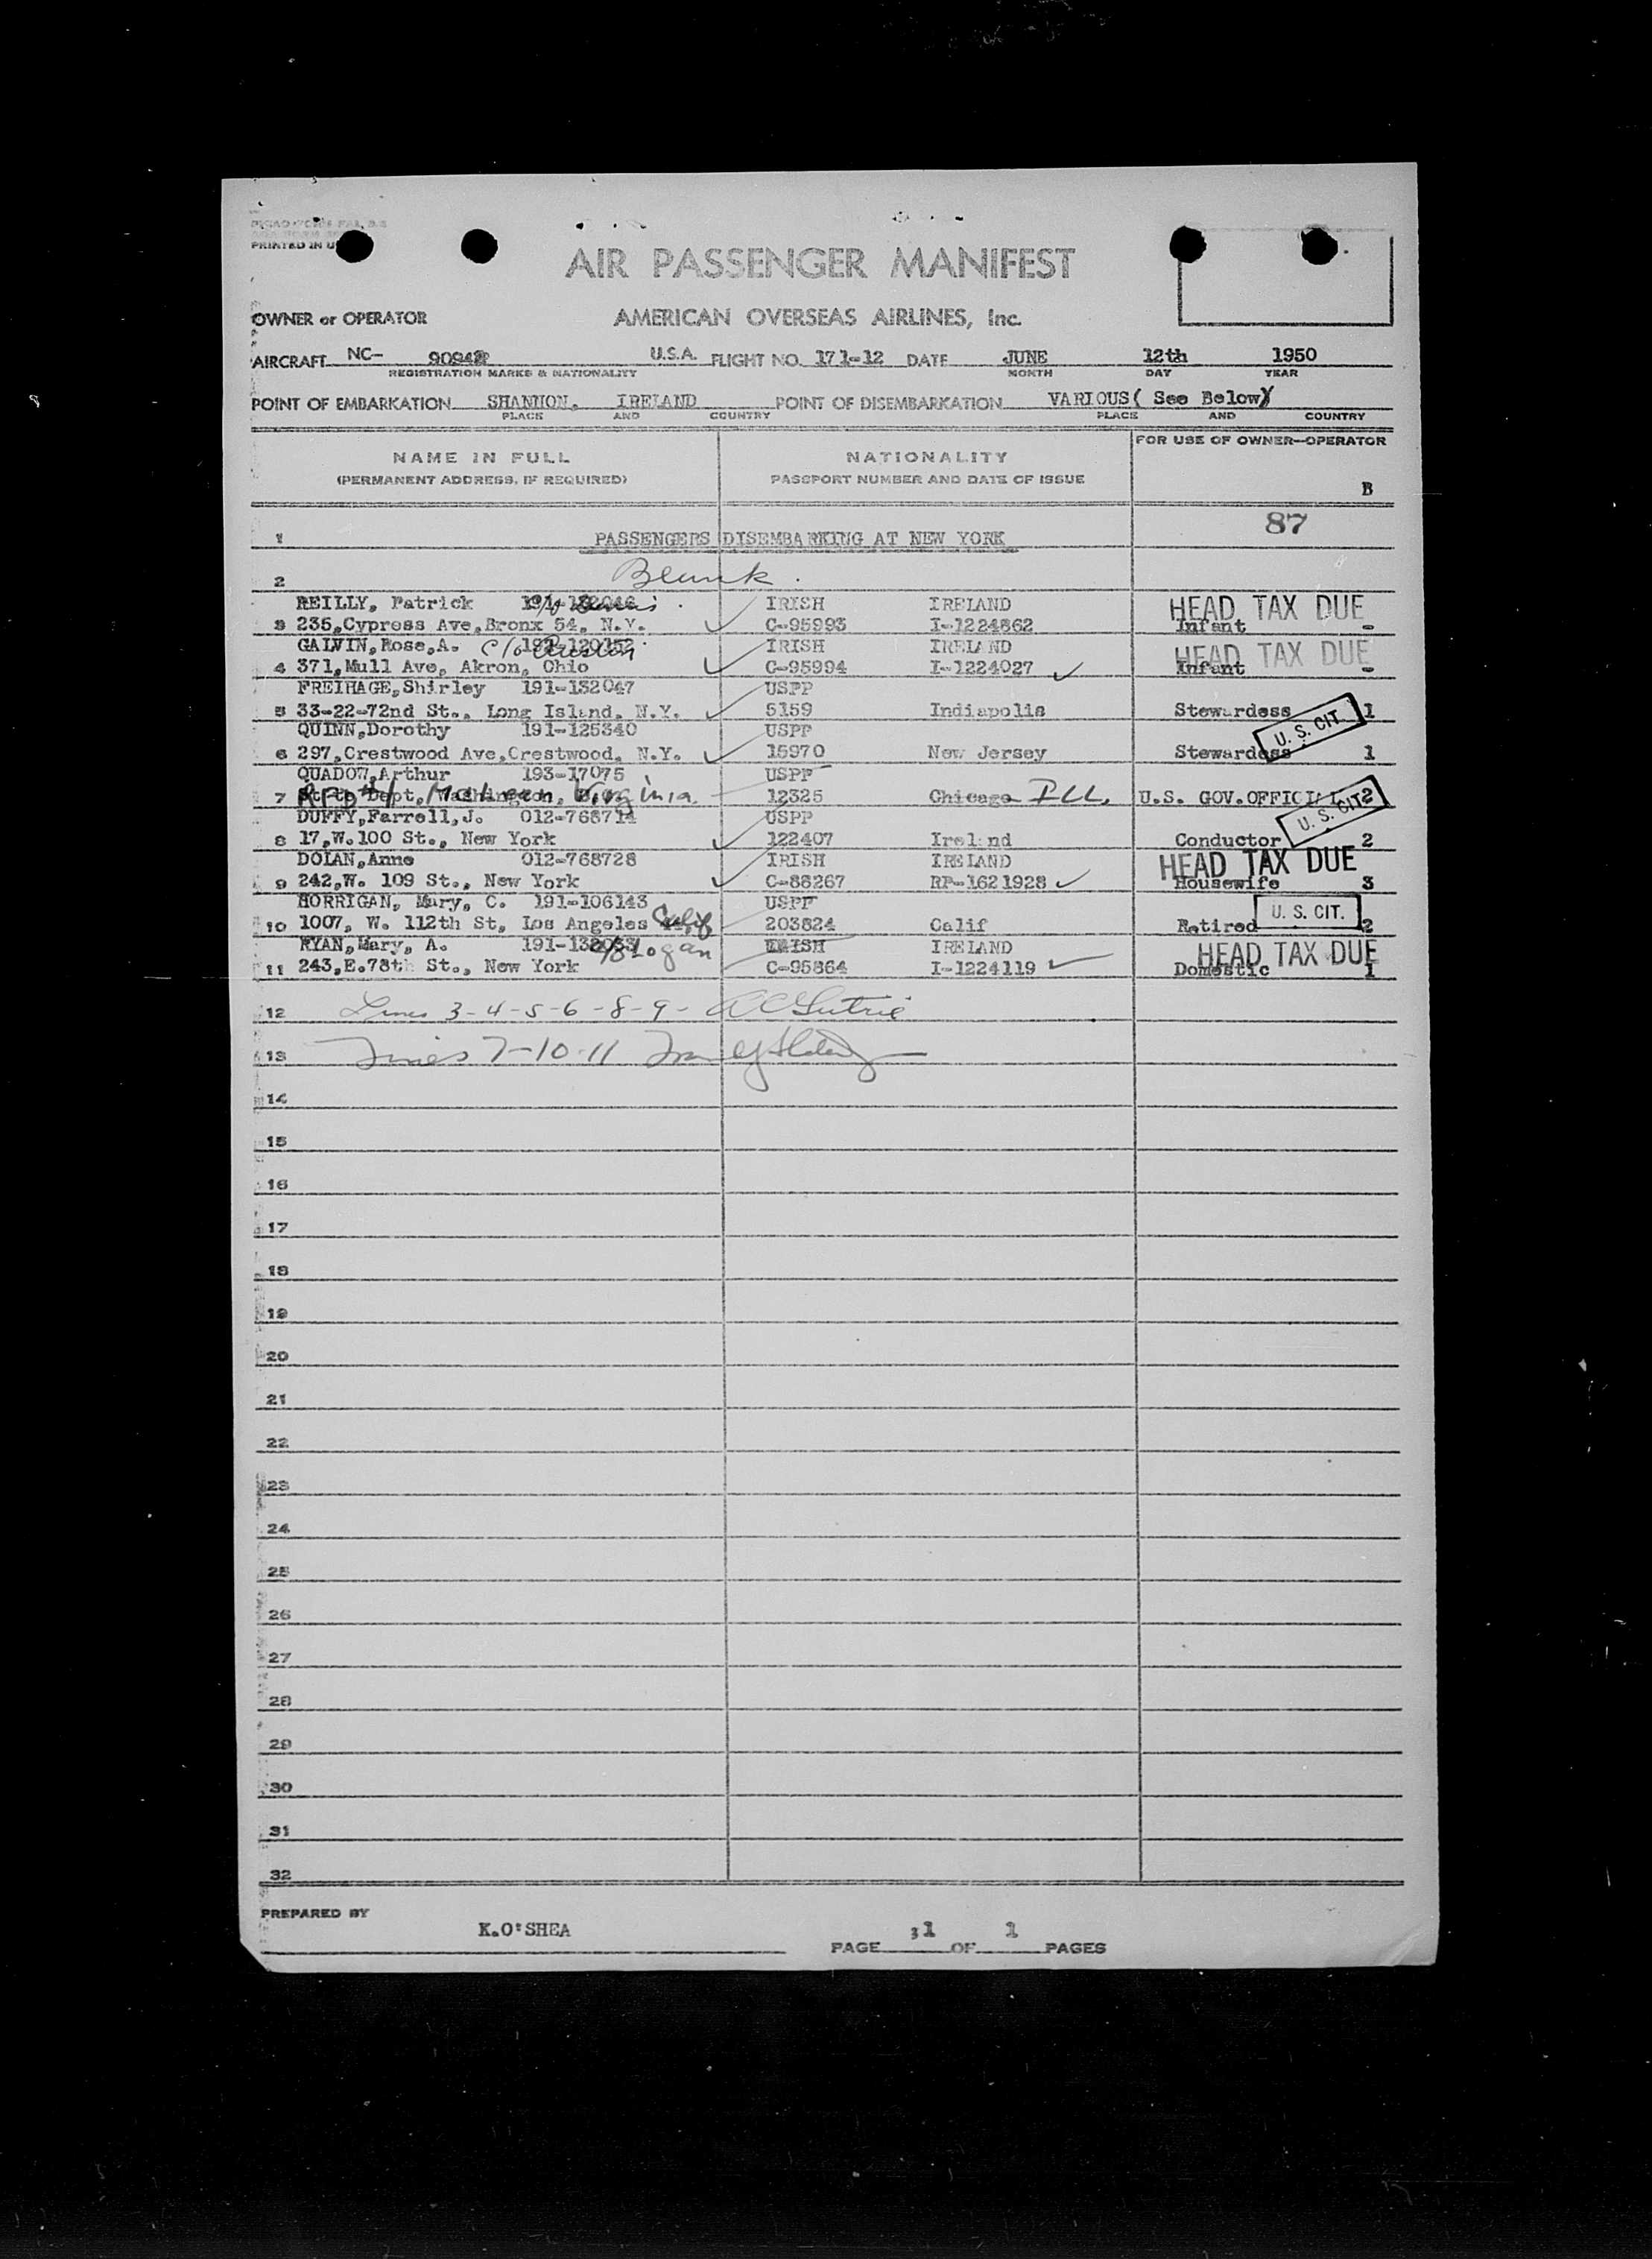 PRINTED IN U
AIR PASSENGER MANIFEST
OWNER or OPERATOR AMERICAN OVERSEAS AIRLINES, Inc.
AIRCRAFT NC- U.S.A. FLIGHT NO. 171-12 DATE JUNE 12th 1950
REGISTRATION MARKS & NATIONALITY MONTH DAY YEAR
POINT OF EMBARKATION SHANNON, IRELAND POINT OF DISEMBARKATION VARIOUS( See Below)
PLACE AND COUNTRY PLACE AND COUNTRY
NAME IN FULL NATIONALITY FOR USE OF OWNER-OPERATOR
(PERMANENT ADDRESS, IF REQUIRED) PASSPORT NUMBER AND DATE OF ISSUE B
87
1 PASSENGERS DISEMBARKING AT NEW YORK
2 Blank.
REILLY, Patrick IRISH IRELAND HEAD TAX DUE
3 235,Cypress Ave,Bronx 54, N.Y. C-95993 I-1224862 Infant -
GALVIN,Rose,A. c/o IRISH IRELAND HEAD TAX DUE
4 371,Mull Ave, Akron, Ohio C-95994 I-1224027 Infant -
FREIHAGE,Shirley 191-132047 USPP
5 33-22-72nd St., Long Island, N.Y. 5159 Indiapolis Stewardess 1
QUINN,Dorothy 191-125340 USPP U. S. CIT.
6 297,Crestwood Ave,Crestwood, N.Y. 15970 New Jersey Stewardess 1
QUADOW,Arthur 193-17075 USPP
7 RFD #1 McLean, Virginia 12325 Chicago ILL. U.S. GOV.OFFICIAL 2
DUFFY,Farrell,J. 012-768714 USPP U. S. CIT.
8 17,W.100 St., New York 122407 Ireland Conductor 2
DOLAN,Anne 012-768728 IRISH IRELAND HEAD TAX DUE
9 242,W. 109 St., New York C-88267 RP-1621928 Housewife 3
HORRIGAN, Mary, C. 191-106143 USPP U. S. CIT.
10 1007, W. 112th St, Los Angeles Calif 203824 Calif Retired 2
RYAN,Mary, A. c/o Logan IRISH IRELAND HEAD TAX DUE
11 243,E.78th St., New York C-95864 I-1224119 Domestic 1
12 Lines 3-4-5-6-8-9-
13 Lines 7-10-11
14
15
16
17
18
19
20
21
22
23
24
25
26
27
28
29
30
31
32
PREPARED BY K.O'SHEA PAGE 1 OF 1 PAGES